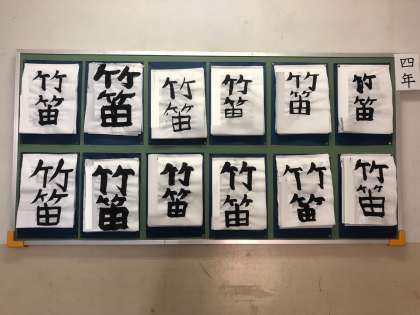 四年
竹笛
竹笛
竹笛
竹笛
竹笛
竹笛
竹笛
竹笛
竹笛
竹笛
竹笛
竹笛